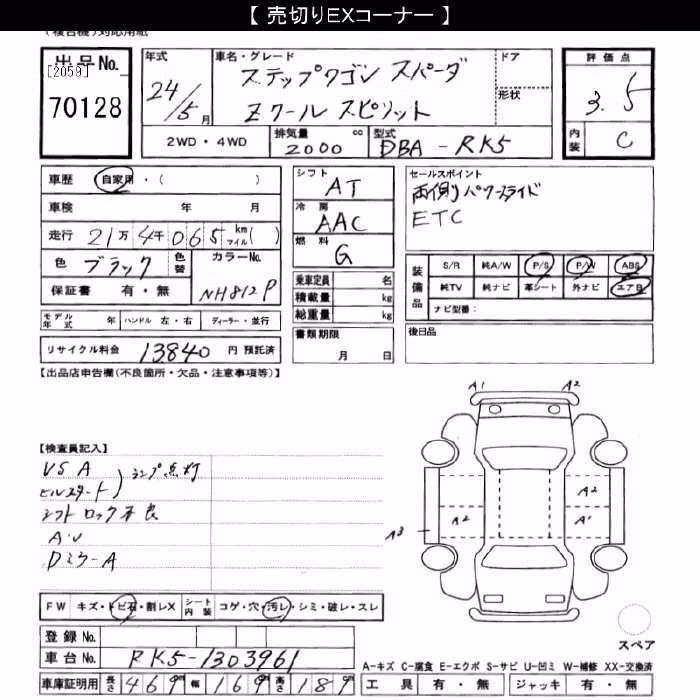 【 売切りEXコーナー 】
(複合機)対応用紙
出品No. [2059] 70128
年式 24/5 月
車名・グレード ステップワゴン スパーダ
Zクール スピリット
ドア
形状
評価点 3.5
内装 C
2WD・4WD 排気量 2000 cc 型式 DBA-RK5
車歴 自家用・( )
車検 年 月
走行 21万 4千 065 km マイル( )
色 ブラック 色替 カラーNo. NH812P
保証書 有・無
モデル年式 年 ハンドル 左・右 ディーラー・並行
リサイクル料金 13840 円 預託済
シフト AT
冷房 AAC
燃料 G
乗車定員 名
積載量 kg
総重量 kg
書類期限
月 日
セールスポイント
両側パワースライド
ETC
装備品 S/R 純A/W P/S P/W ABS
純TV 純ナビ 革シート 外ナビ エアB
ナビ型番:
後日品
【出品店申告欄(不良箇所・欠品・注意事項等)】
【検査員記入】
VSA
ヒルスタート ランプ点灯
シフトロック不良
A.U
Dミラー A
A1 A2
A2
A2 A1
A3
FW キズ・トビ石・割レX シート内装 コゲ・穴・汚レ・シミ・破レ・スレ
登録 No.
車台 No. RK5-1303961
車庫証明用 長さ 469 幅 169 高さ 189
スペア
A-キズ C-腐食 E-エクボ S-サビ U-凹ミ W-補修 XX-交換済
工具 有・無 ジャッキ 有・無